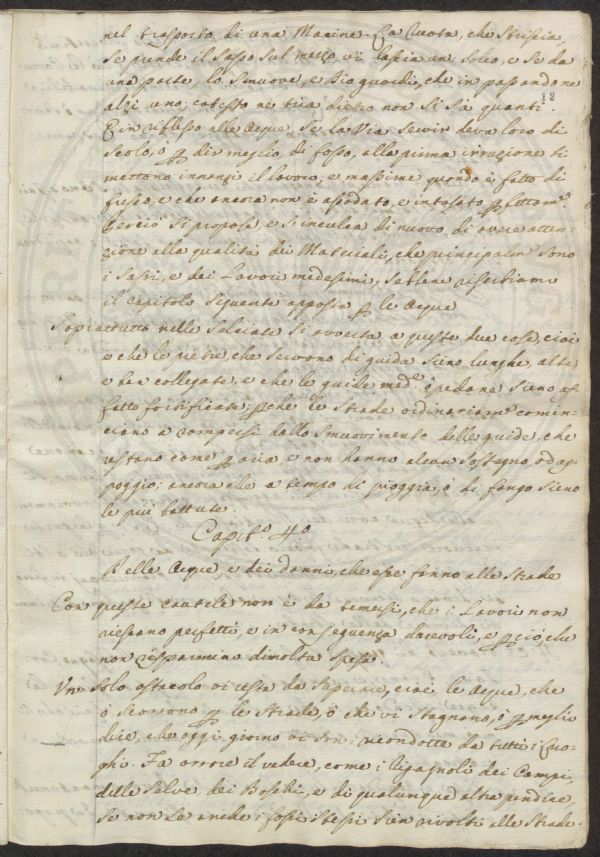 nel trasporto di una Macine. La Ruota, che striscia,
se prende il sasso sul mezzo vi lascia un solco, e se da
una parte, lo smuove, e Dio guardi, che in passando ne
alzi uno; cotesto ne tira dietro non si sà quanti.
12
E in riflesso alle Acque, se la Via servir deva loro di
Scolo, ò p dir meglio, di fosso, alla prima irruzione ti
mettono innanzi il lavoro, e massime quando è fatto di
fresco, e che ancora non è assodato, e intasato pfettam.e
Perciò si propose, e s'inculca di nuovo di avere atten-
zione alla qualità dei Materiali, che principalm.e sono
i sassi, e dei Lavori medesimi, sebbene riserbiamo
il Capitolo seguente apposta p le Acque
Soprattutto nelle Selciate si avverta a queste due cose, cioè
e che le pietre, che servono di guida sieno lunghe, alte,
e ben collegate, e che le guide med.e ò pedane sieno af-
fatto fortificate; pche le Strade ordinariam.e comin-
ciano a rompersi dallo smuovimento delle guide, che
restano come p aria, e non hanno alcun sostegno, od ap-
poggio; ancora che a tempo di pioggia, ò di fango sieno
le più battute.
Capit.o 4.o
Delle Acque, e dei danni, che esse fanno alle Strade
Con queste cautele non è da temersi, che i Lavori non
riescano perfetti, e in conseguenza durevoli, e p ciò, che
non risparmino dimolta spesa.
Un solo ostacolo vi resta da superare, cioè, le Acque, che
ò scorrono p le Strade, ò che vi stagnano, ò p meglio
dire, che oggi giorno vi son ricondotte da tutti i luo-
ghi. Fa orrore il vedere, come i rigagnoli dei Campi,
delle Selve dei Boschi, e di qualunque altra pendice,
se non la anche i fossi stessi sien rivolti alle Strade.